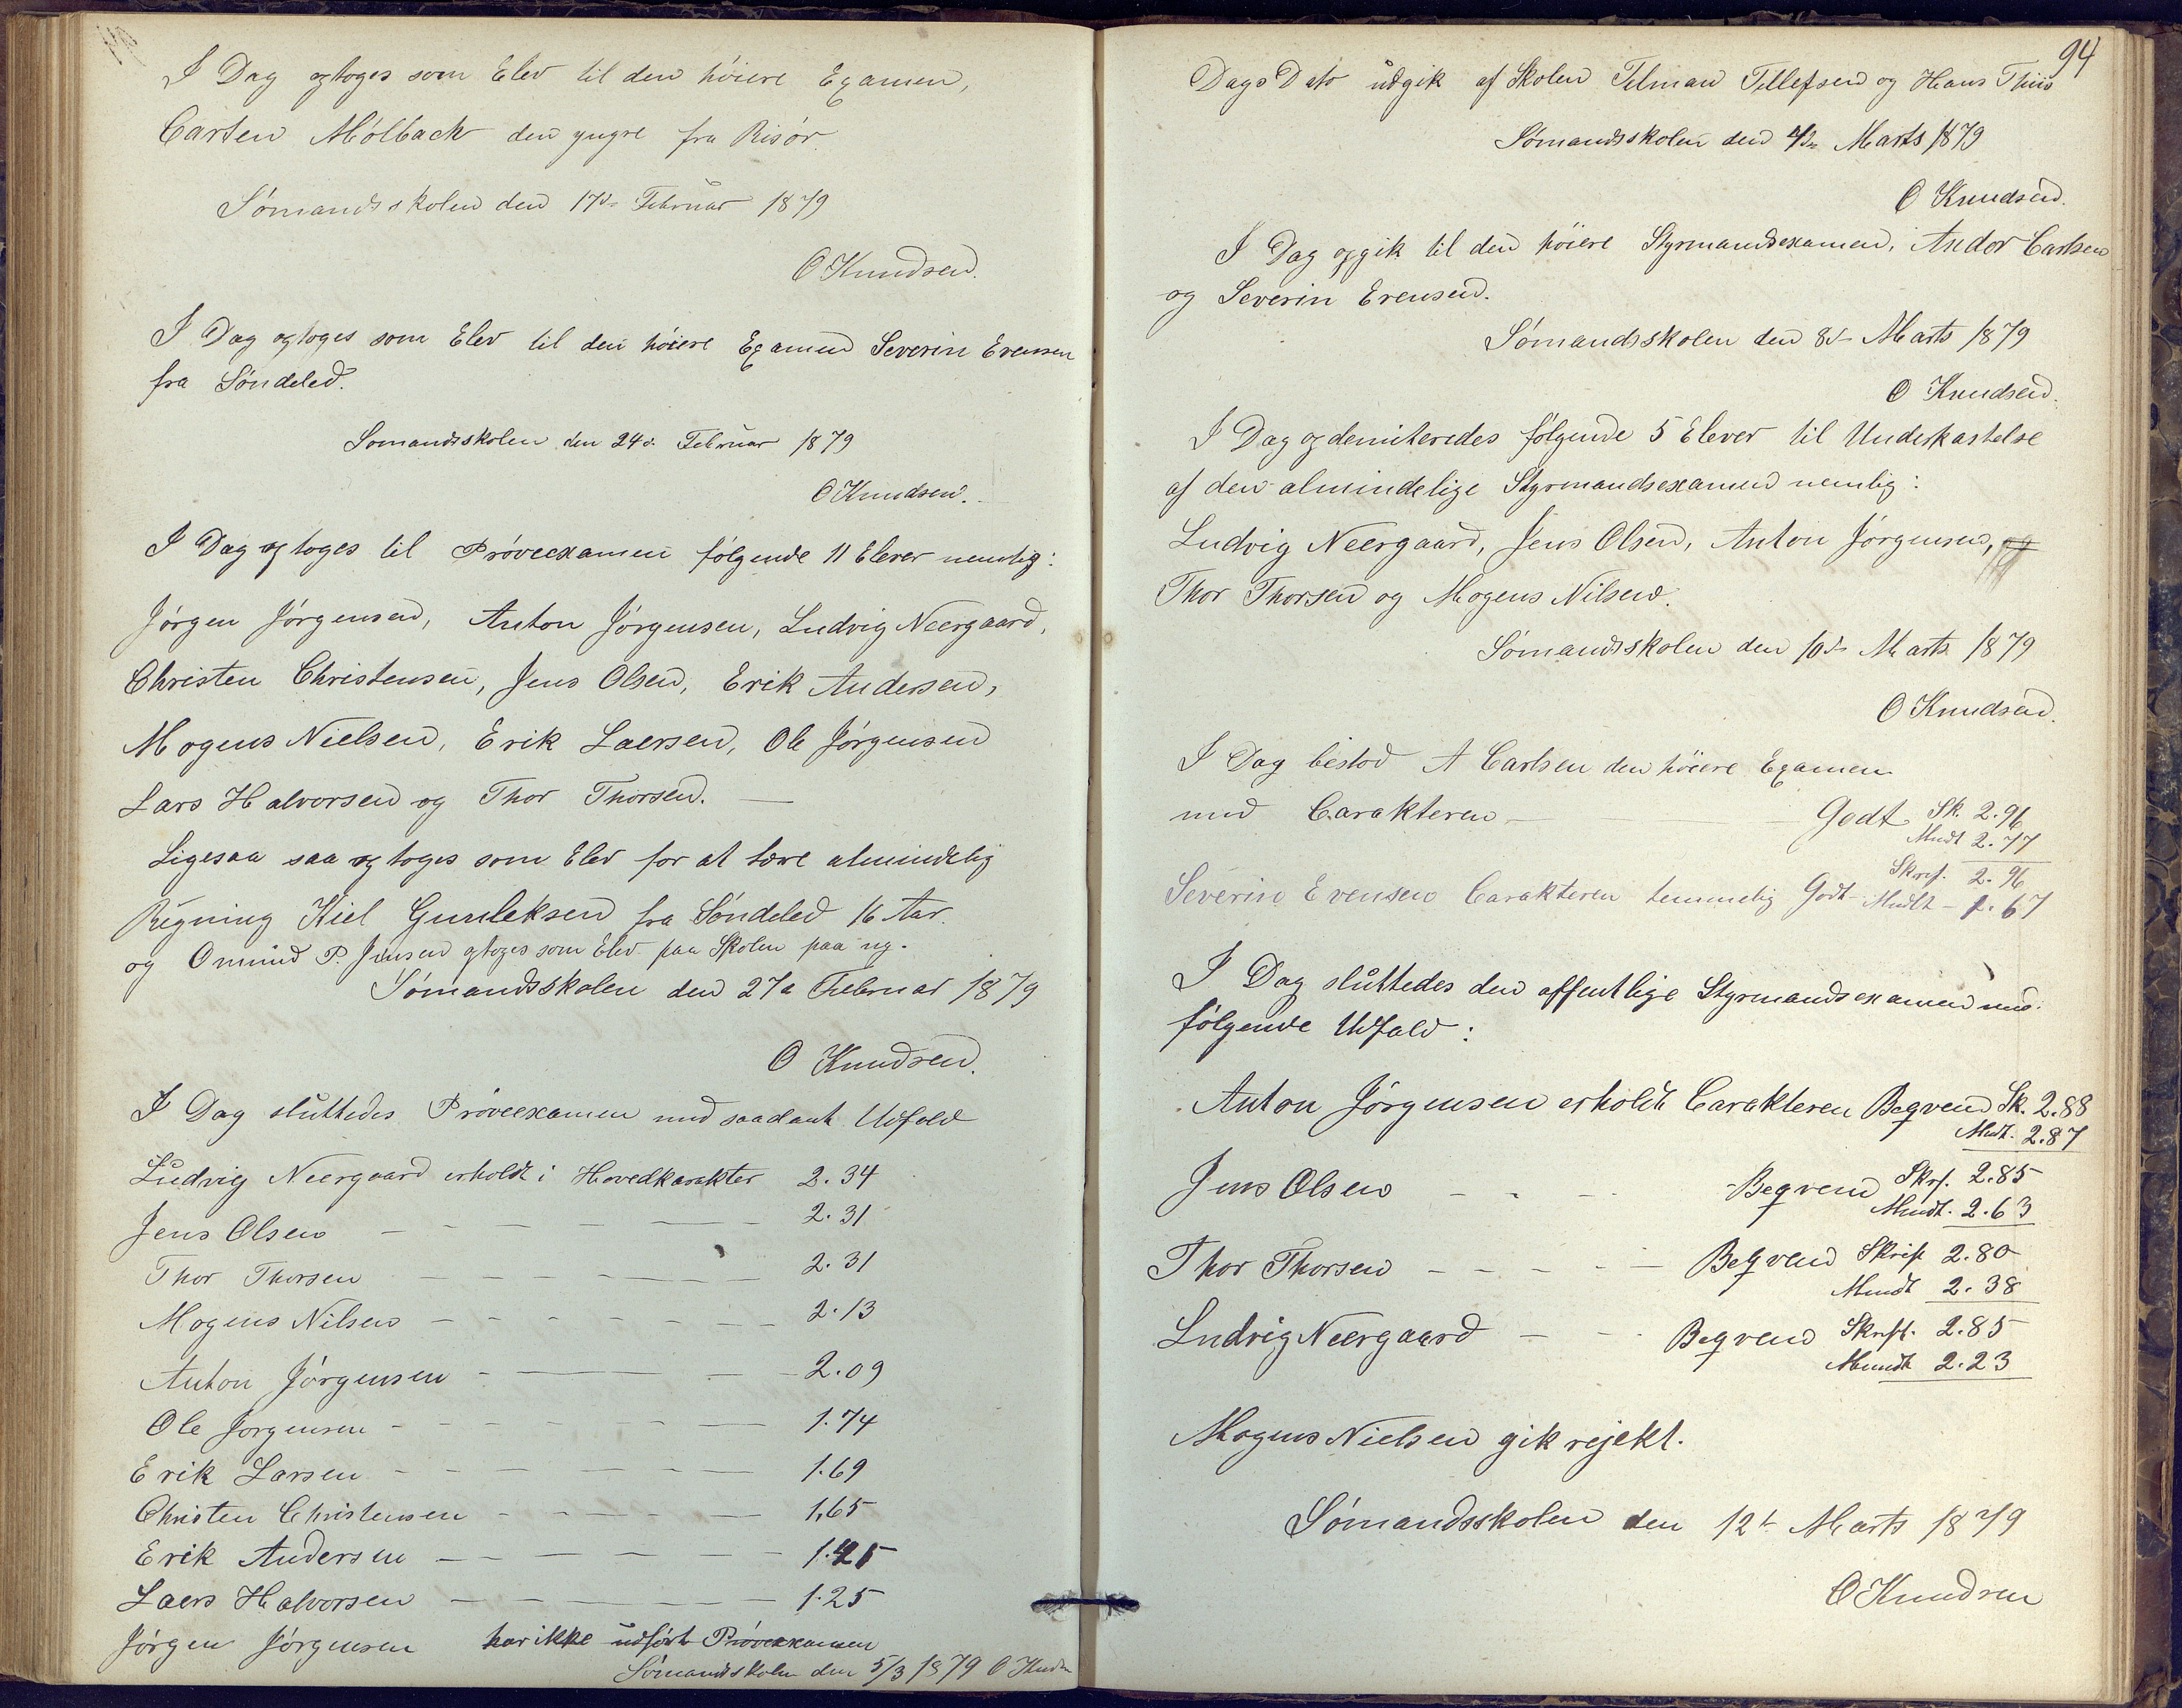 I Dag optoges som Elev til den höiere Examen,
Carsten Mölback den yngre fra Risör.
Sömandsskolen den 17de Februar 1879
O Knudsen.
I Dag optoges som Elev til den höiere Examen Severin Evensen
fra Söndeled.
Sömandsskolen den 24de Februar 1879
O Knudsen.
I Dag optoges til Pröveexamen fölgende 11 Elever nemlig:
Jörgen Jörgensen, Anton Jörgensen, Ludvig Neergaard,
Christen Christensen, Jens Olsen, Erik Andersen,
Mogens Nielsen, Erik Laersen, Ole Jörgensen
Lars Halvorsen og Thor Thorsen. —
Ligesaa saa optoges som Elev for at lære almindelig
Regning Kiel Gunleksen fra Söndeled 16 Aar.
og Omund P. Jensen optoges som Elev paa Skolen paa ny.
Sömandsskolen den 27de Februar 1879
O Knudsen.
I Dag sluttedes Pröveexamen med saadant Udfald
Ludvig Neergaard erholdt i Hovedkarakter 2.34
Jens Olsen — — — — — — 2.31
Thor Thorsen — — — — — — 2.31
Mogens Nilsen — — — — — — 2.13
Anton Jörgensen — — — — 2.09
Ole Jörgensen — — — — — — 1.74
Erik Larsen — — — — — — 1.69
Christen Christensen — — — — — 1,65
Erik Andersen — — — — — 1.45
Laers Halvorsen — — — — — 1.25
Jörgen Jörgensen har ikke udfört Pröveexamen
Sömandsskolen den 5/3 1879 O Knudsen
94
Dags Dato udgik af Skolen Tilman Tellefsen og Hans Thiis
Sömandsskolen den 4de Marts 1879
O Knudsen.
I Dag opgik til den höiere Styrmandsexamen, Andor Carlsen
og Severin Evensen.
Sömandsskolen den 8de Marts 1879
O Knudsen.
I Dag opdemiteredes fölgende 5 Elever til Underkastelse
af den almindelige Styrmandsexamen nemlig:
Ludvig Neergaard, Jens Olsen, Anton Jörgensen, og
Thor Thorsen og Mogens Nilsen.
Sömandsskolen den 10de Marts 1879
O Knudsen.
I Dag bestod A Carlsen den höiere Examen
med Carakteren — Godt Sk. 2.96
Mndt 2.77
Severin Evensen Carakteren temmelig Godt Skrf. 2.96
Mndtl — 1.67
I Dag sluttedes den offentlige Styrmandsexamen med
fölgende Udfald:
Anton Jörgensen erholdt Carakteren Beqvem Sk. 2.88
Mndt. 2.87
Jens Olsen — — — Beqvem Skrf. 2.85
Mundt. 2.63
Thor Thorsen — — — — — Beqvem Skrift 2.80
Mundt 2.38
Ludvig Neergaard — — Beqvem Skrift. 2.85
Mundt 2.23
Mogens Nielsen gik rejekt.
Sömandsskolen den 12te Marts 1879
O Knudsen